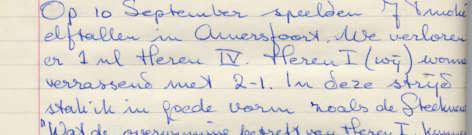 Op 10 September speelden 7 Truc
elftallen in Amersfoort. We verloren
er 1 nl Heren IV. Heren I (wij) wonne
verrassend met 2-1. In deze strijd
stak ik in goede vorm zoals de
"Wat de overwinning betreft van Heren I,